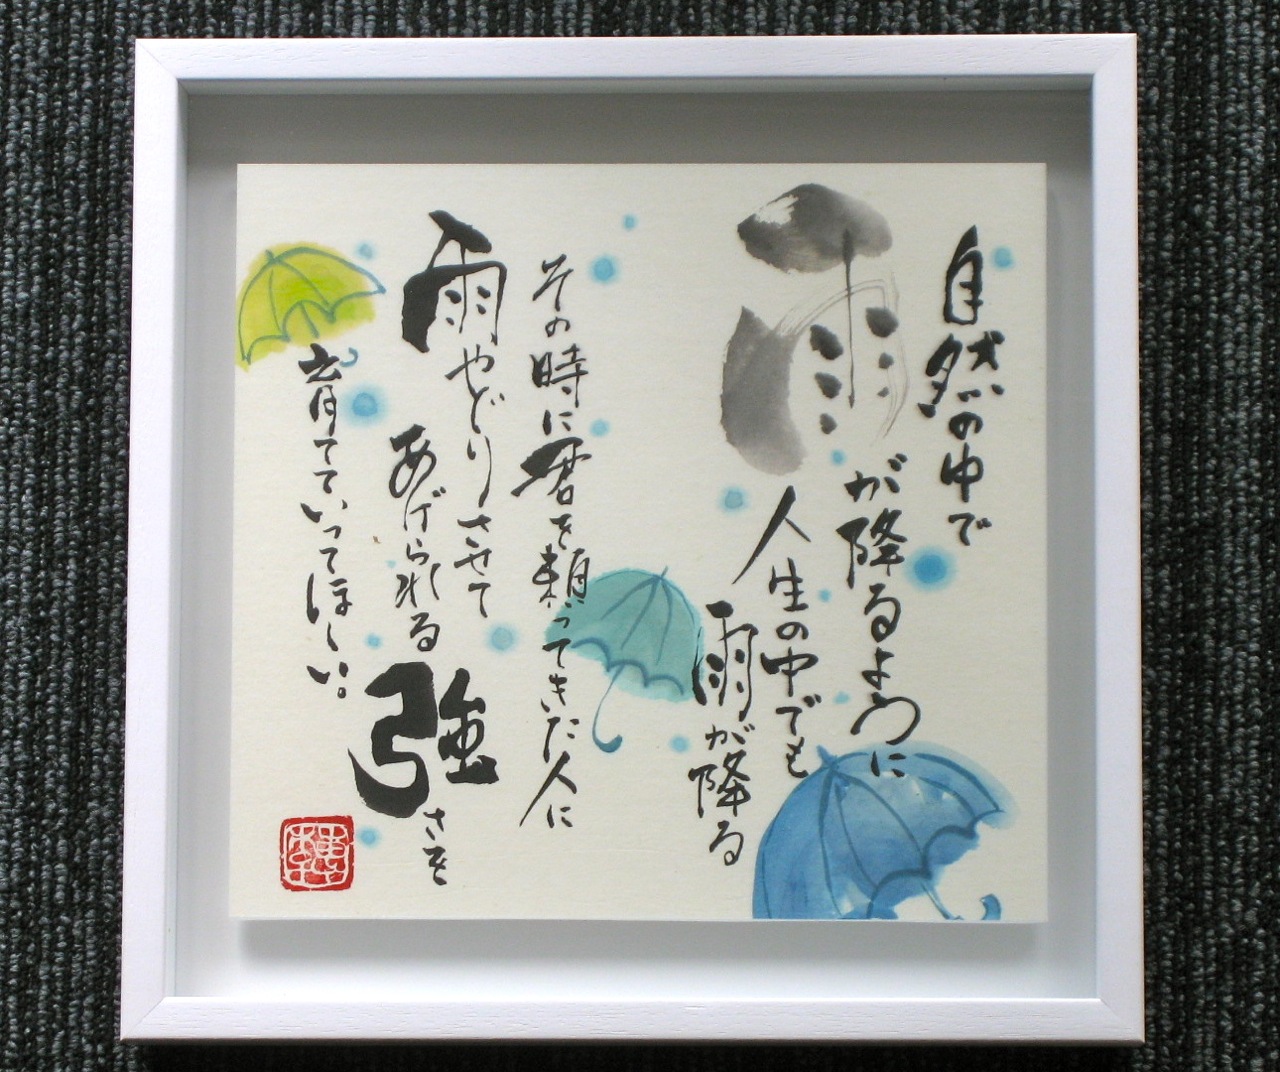 自然の中で
雨が降るように
人生の中でも
雨が降る
その時に君を頼ってきた人に
雨やどりさせて
あげられる
強さを
育てていってほしい。